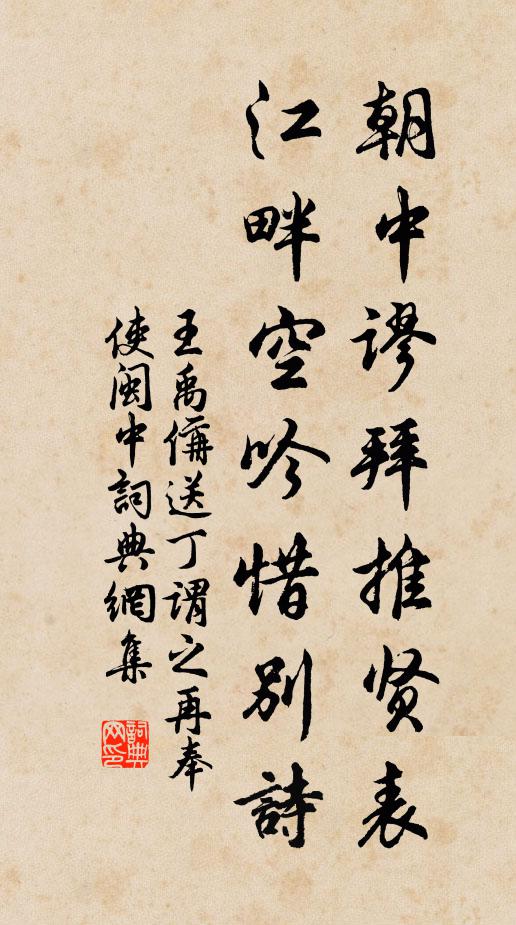 朝中谬拜推贤表
江畔空吟惜别詩
王禹偁送丁謂之再奉
使闽中詞典網集
詞典网印